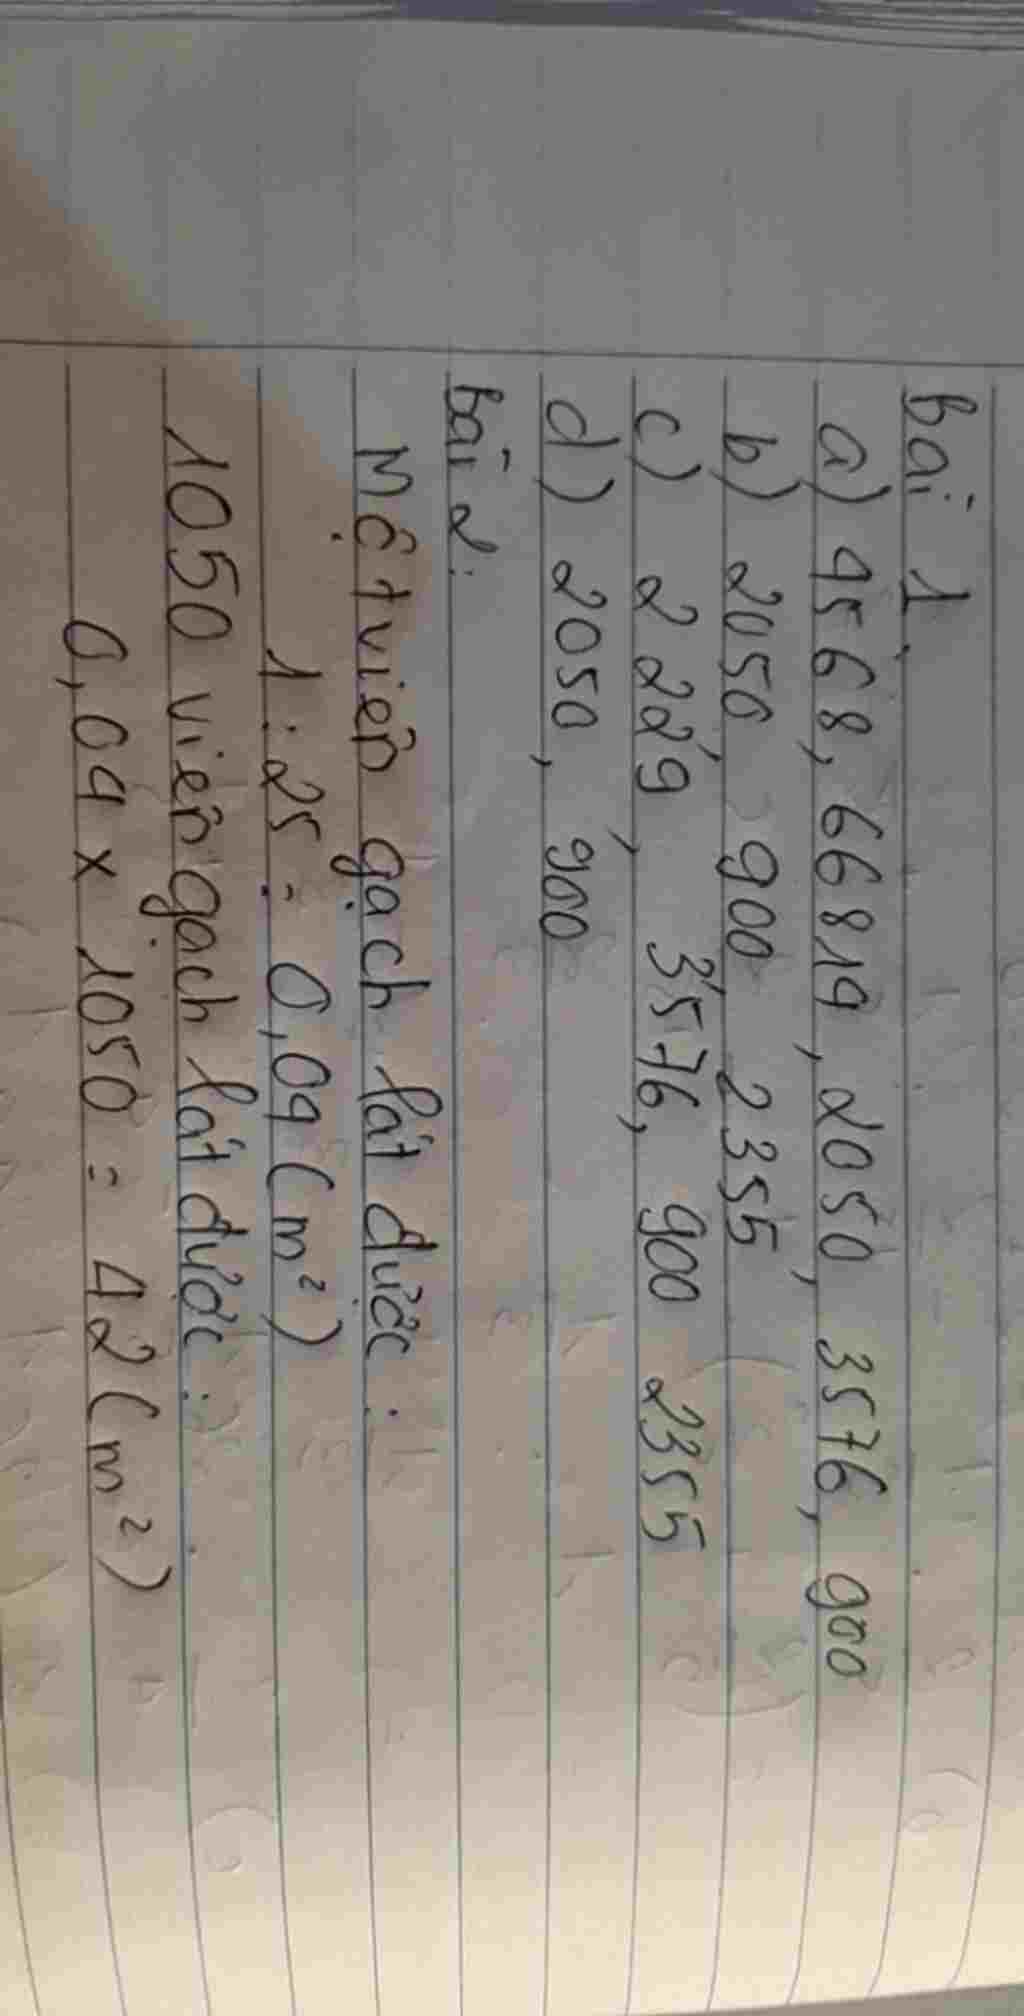 bài 1.
a) 4568, 66819, 2050, 3576, 900
b) 2050, 900, 2355
c) 2229, 3576, 900 2355
d) 2050, 900
bài 2:
Một viên gạch lát được:
1 : 25 = 0,04 (m²)
1050 viên gạch lát được:
0,04 x 1050 = 42 (m²)